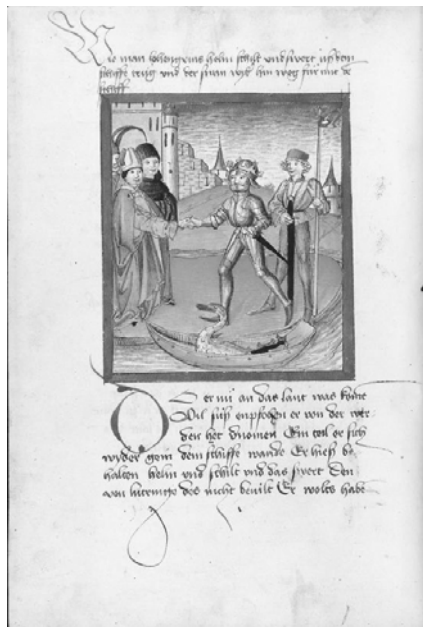 Wie man lohengrins helm schilt und swert uß dem
schiffe trug und der swan wider hin weg fůr mit de
schiff
Do er nu an das lant was kome
Vil suß enpfohen er von der wer
den het vnomen Ein teil er sich
wyder gein dem schiffe wande Er hieß be
halten helm vnd schilt vnd das swert Den
von lutringe des nicht beuilt Er wolts habe